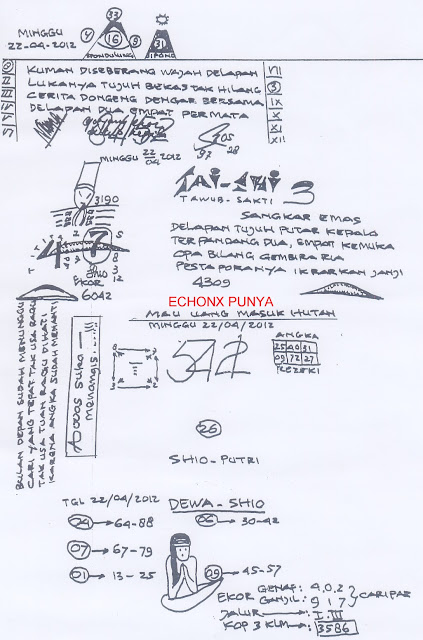 MINGGU
22-04-2012
33
4 16 9
31
SPONDULUNG
SIPONG
KUMAN DISEBERANG WAJAH DELAPAN
LUKANYA TUJUH BEKAS TAK HILANG
CERITA DONGENG DENGAR BERSAMA
DELAPAN DUA EMPAT PERMATA
VII
IX
X
XI
XII
MINGGU 22/04 2012
3190
TAI-SHI 3
TAWUB-SAKTI
SANGKAR EMAS
DELAPAN TUJUH PUTAR KEPALO
TERPANDANG DUA, EMPAT KEMUKA
OPA BILANG GEMBIRA RIA
PESTAPORANYA IKRARKAN JANJI
4309
SHIO
EKOR 12
6042
ECHONX PUNYA
MAU UANG MASUK HUTAN
MINGGU 22/04/2012
542
ANGKA
25 40 31
09 72 27
REZEKI
BULAN DEPAN SUDAH MENUNGGU
CARI YANG TEPAT TAK USA RAGU
TAK USA TUAN RAGU DIHATI
KARENA ANGKA SUDAH MENANTI
Awas suka
menangis....!!!
26
SHIO-PUTRI
TGL 22/04/2012
DEWA-SHIO
04 → 64-88
06 → 30-42
07 → 67-79
01 → 13-25
09 → 45-57
EKOR GENAP: 4,0,2
GANJIL: 9 1 7
CARIPAS
JALUR → I.III
KOP 3 KUMA → 3586